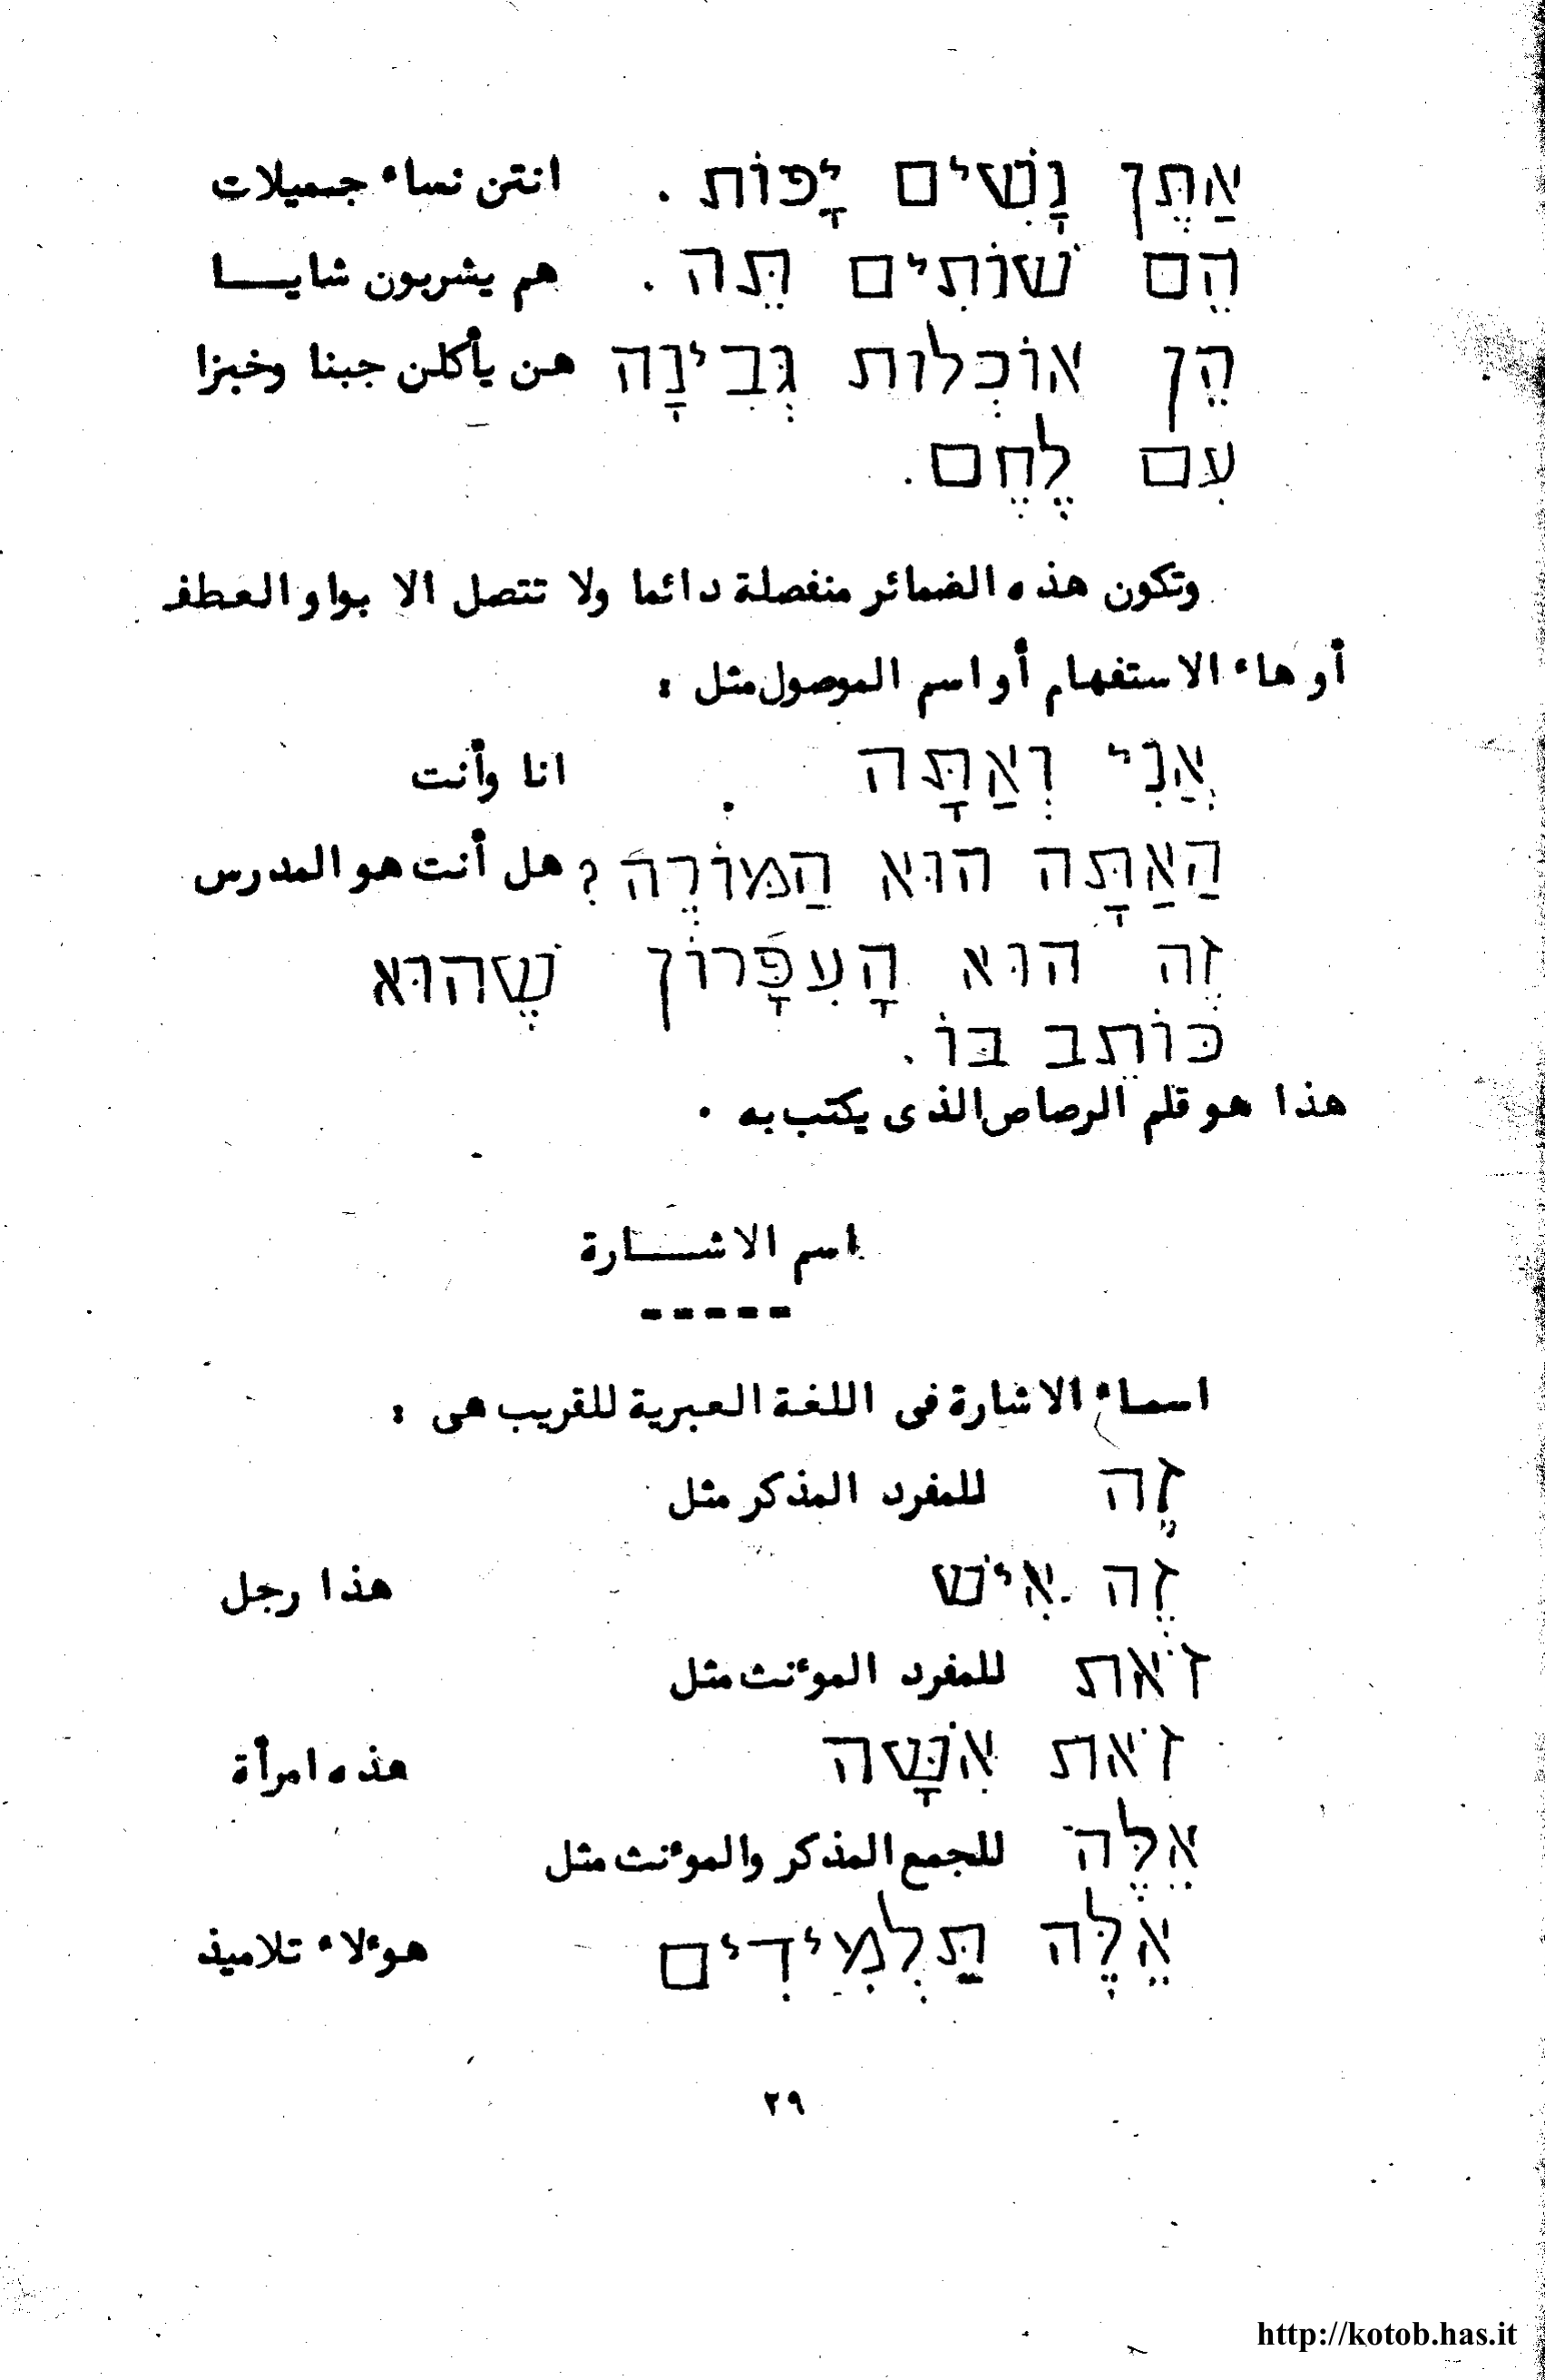 אַתֶּן נָשִׁים יָפוֹת . انتن نساء جميلات
הֵם שׁוֹתִים תֵּה . هم يشربون شايا
הֵן אוֹכְלות גְּבִינָה هن يأكلن جبنا وخبزا
עִם לֶחֶם .
وتكون هذه الضمائر منفصلة دائما ولا تتصل الا بواو العطف
أو هاء الاستفهام أو اسم الموصول مثل :
אֲנִי וְאַתָּה . انا وأنت
הַאַתָּה הוּא הַמּוֹרֶה ? هل أنت هو المدرس
זֶה הוּא הָעִפָּרוֹן שֶׁהוּא
כּוֹתֵב בּוֹ .
هذا هو قلم الرصاص الذى يكتب به .
اسم الاشارة
-----
اسماء الاشارة فى اللغة العبرية للقريب هى :
זֶה للمفرد المذكر مثل
זֶה אִישׁ هذا رجل
זֹאת للمفرد الموءنث مثل
זֹאת אִשָּׁה هذه امرأة
אֵלֶּה للجمع المذكر والموءنث مثل
אֵלֶּה תַּלְמִידִים هوءلاء تلاميذ
٢٩
http://kotob.has.it